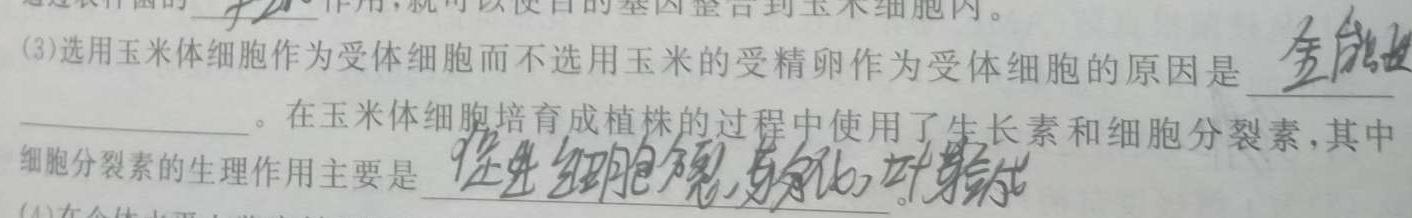 作用,就可以使目的基因整合到玉米细胞内。
(3)选用玉米体细胞作为受体细胞而不选用玉米的受精卵作为受体细胞的原因是 全能性
。在玉米体细胞培育成植株的过程中使用了生长素和细胞分裂素,其中
细胞分裂素的生理作用主要是 促进细胞分裂、